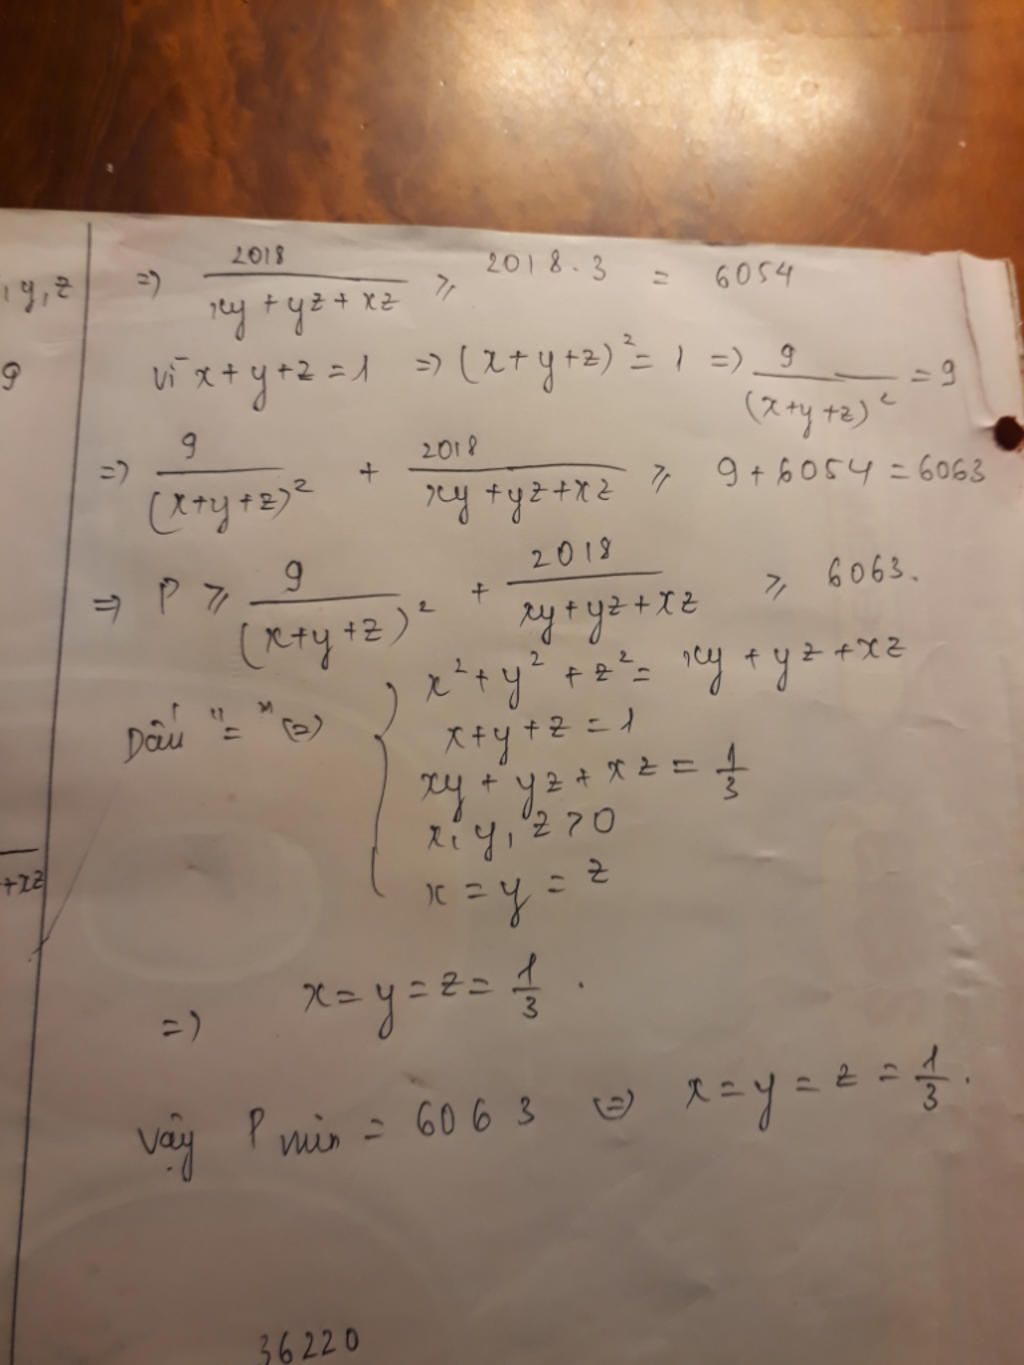 , y, z
=> 2018 / (xy + yz + xz) ≥ 2018.3 = 6054
9
vì x + y + z = 1 => (x + y + z)² = 1 => 9 / (x + y + z)² = 9
=> 9 / (x + y + z)² + 2018 / (xy + yz + xz) ≥ 9 + 6054 = 6063
=> P ≥ 9 / (x + y + z)² + 2018 / (xy + yz + xz) ≥ 6063.
Dấu "=" (=) { x² + y² + z² = xy + yz + xz
x + y + z = 1
xy + yz + xz = 1/3
x, y, z > 0
+ xz
x = y = z
=> x = y = z = 1/3 .
Vậy P min = 6063 (=) x = y = z = 1/3 .
36220